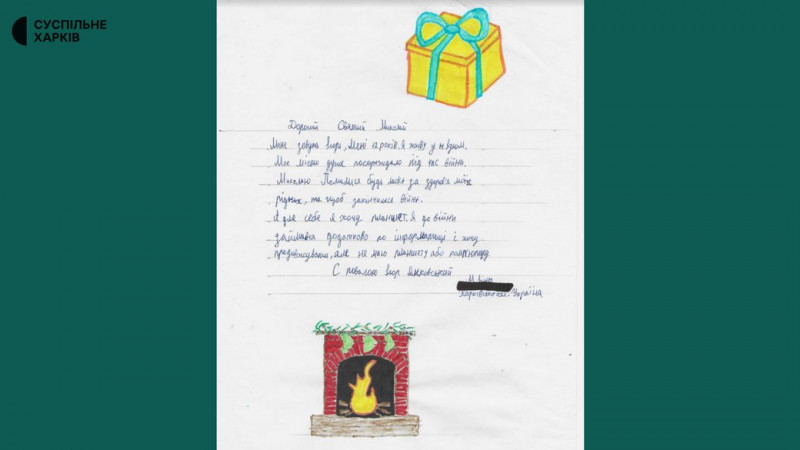 СУСПІЛЬНЕ
ХАРКІВ
Дорогий Святий Миколай
Мене звути Ігор, Мені 12 років. я живу у м. Ізюм.
Моє місто дуже постраждало під час війни.
Миколаю Помолися будь ласка за здоров'я моїх
рідних, та щоб закінчилася війна.
А для себе я хочу планшет. Я до війни
займався додатково по інформатиці і хочу
продовжувати, але не маю планшету або комп'ютеру
С повагою Ігор
Україна